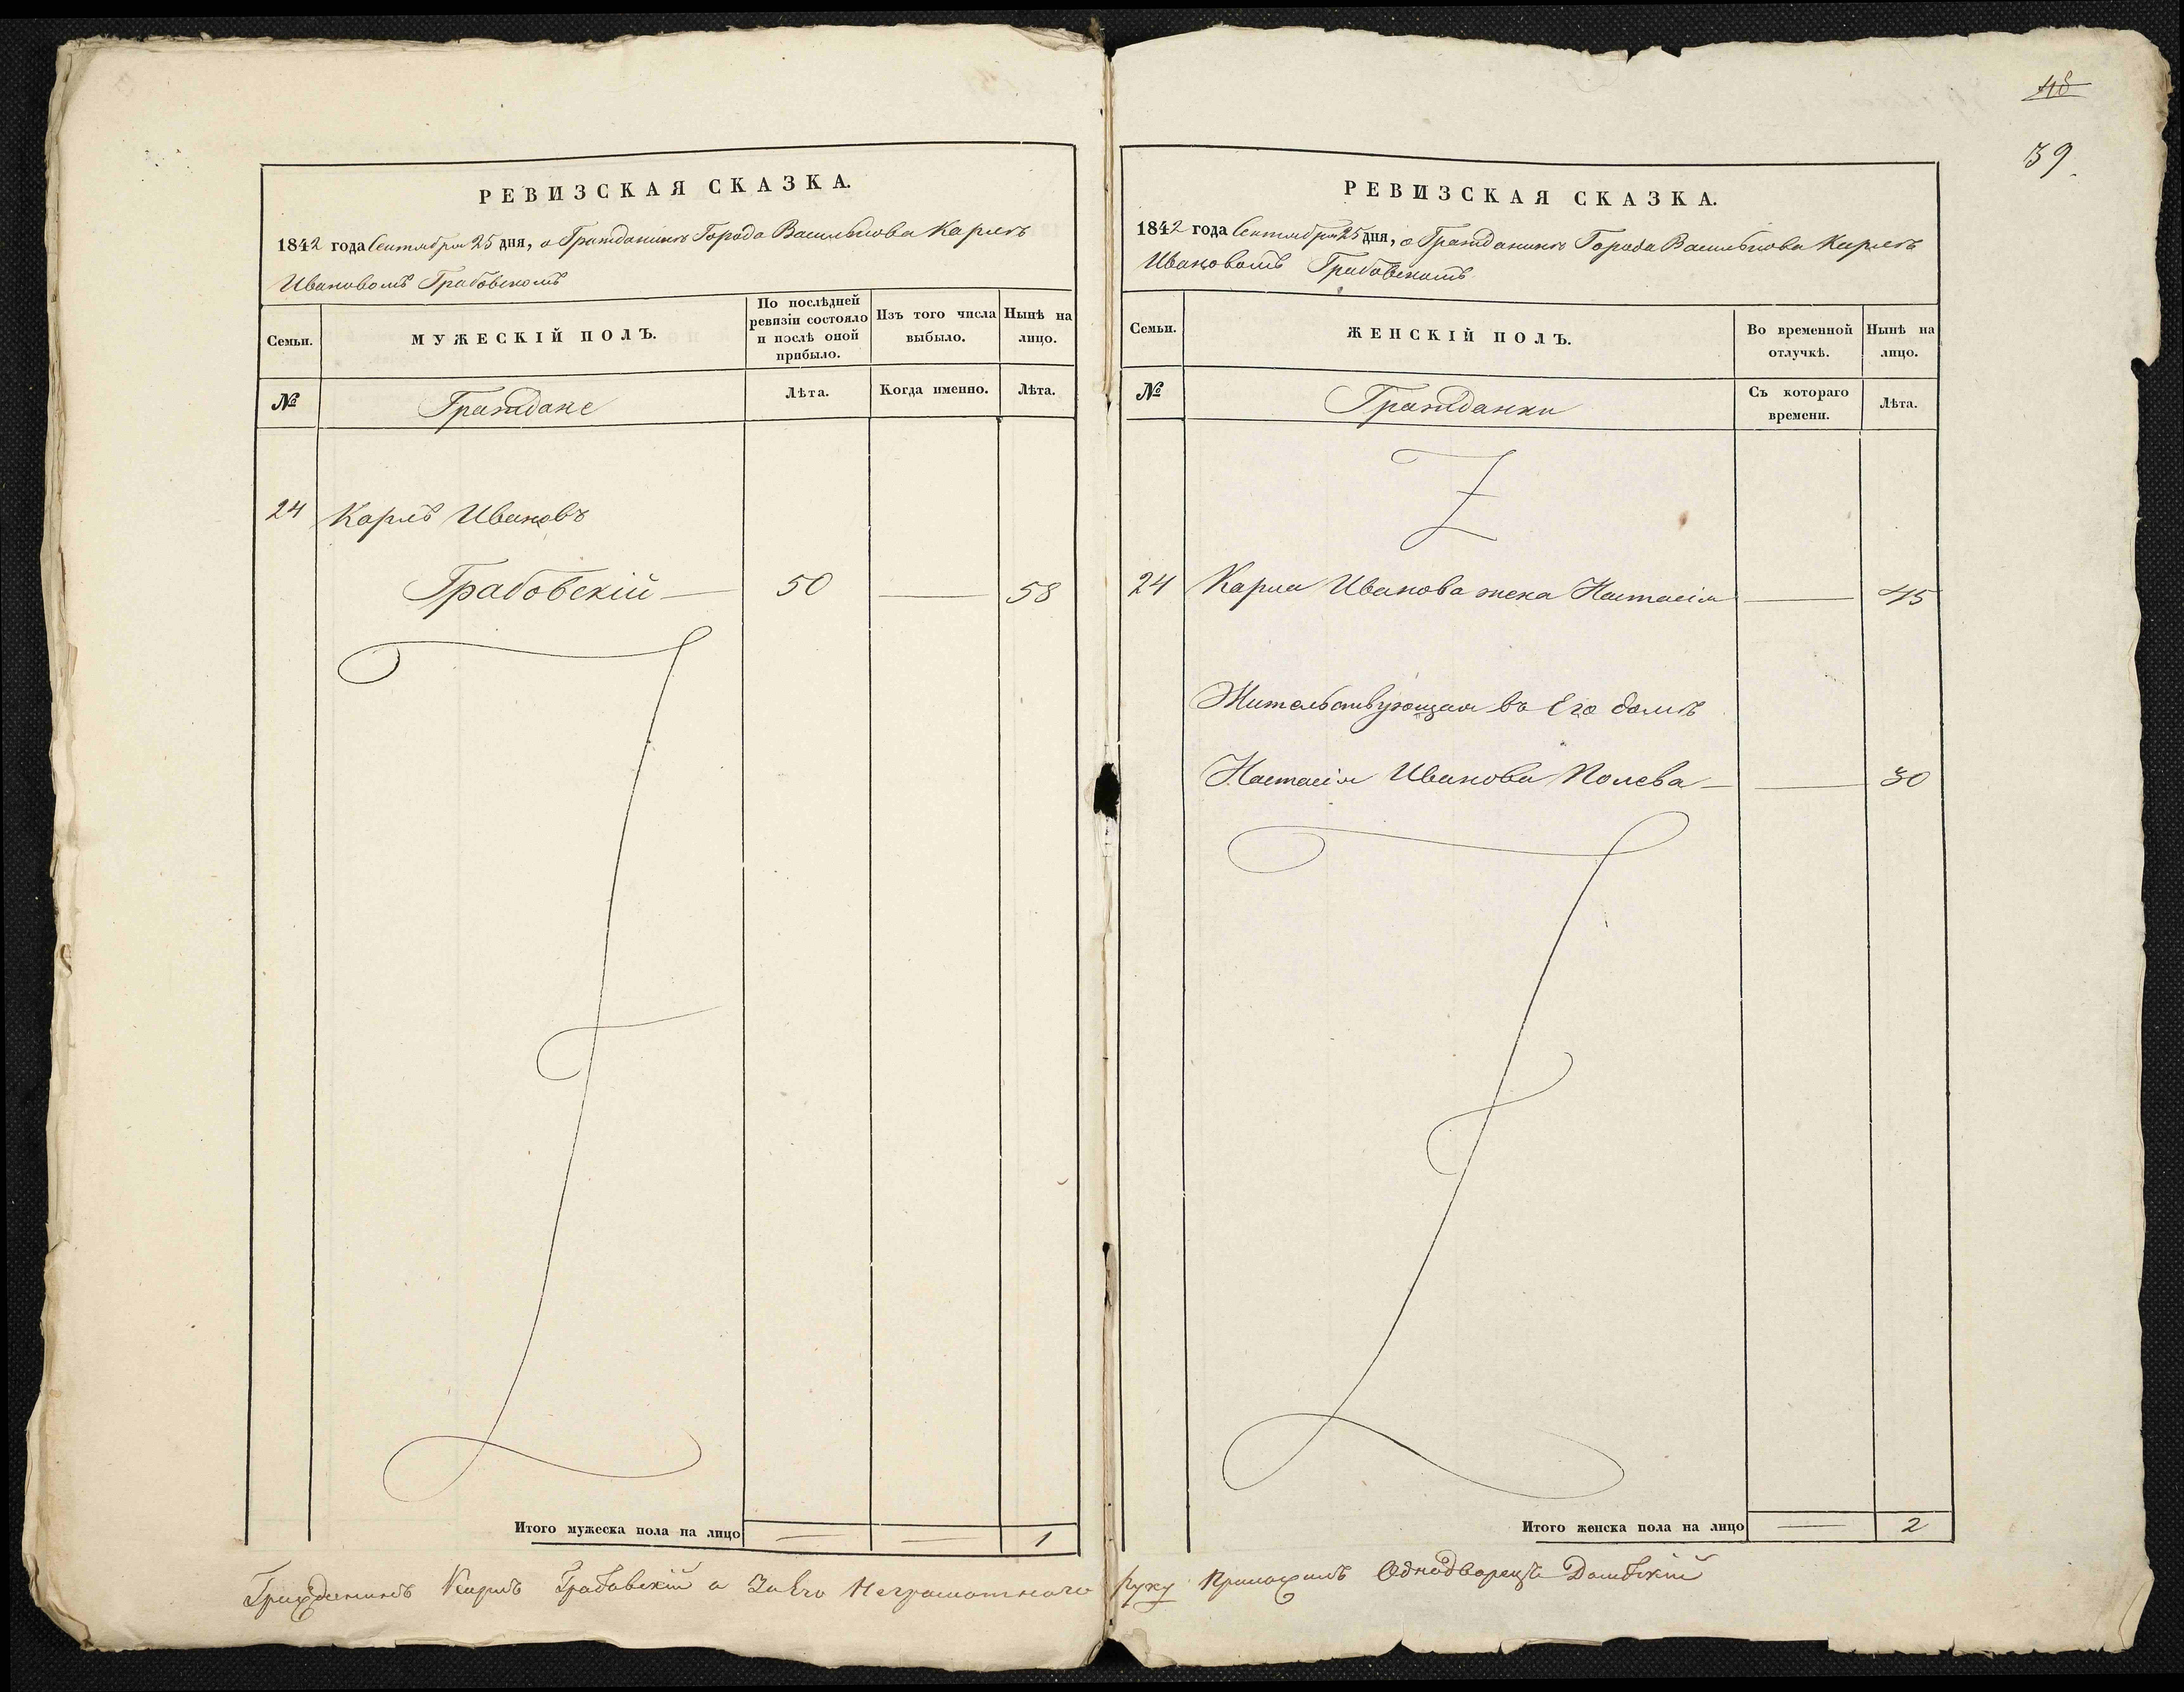 48
39.
РЕВИЗСКАЯ СКАЗКА.
1842 года Сентября 25 дня, о Гражданинѣ Города Василькова Карлѣ
Ивановомъ Грабовскомъ
Семьи.
МУЖЕСКІЙ ПОЛЪ.
По послѣдней
ревизіи состояло
и послѣ оной
прибыло.
Изъ того числа
выбыло.
Нынѣ на
лицо.
№
Граждане
Лѣта.
Когда именно.
Лѣта.
24 Карлъ Ивановъ
Грабовскій — 50 — 58
Итого мужеска пола на лицо — — 1
РЕВИЗСКАЯ СКАЗКА.
1842 года Сентября 25 дня, о Гражданинѣ Города Василькова Карлѣ
Ивановомъ Грабовскомъ
Семьи.
ЖЕНСКІЙ ПОЛЪ.
Во временной
отлучкѣ.
Нынѣ на
лицо.
№
Гражданки
Съ котораго
времени.
Лѣта.
24 Карла Иванова жена Настасія — 45
Жительствующая въ Его домѣ
Настасія Иванова Полева — — 30
Итого женска пола на лицо — 2
Гражданинъ Карлъ Грабовскій а За Его Неграмотнаго руку Приложилъ Однодворецъ